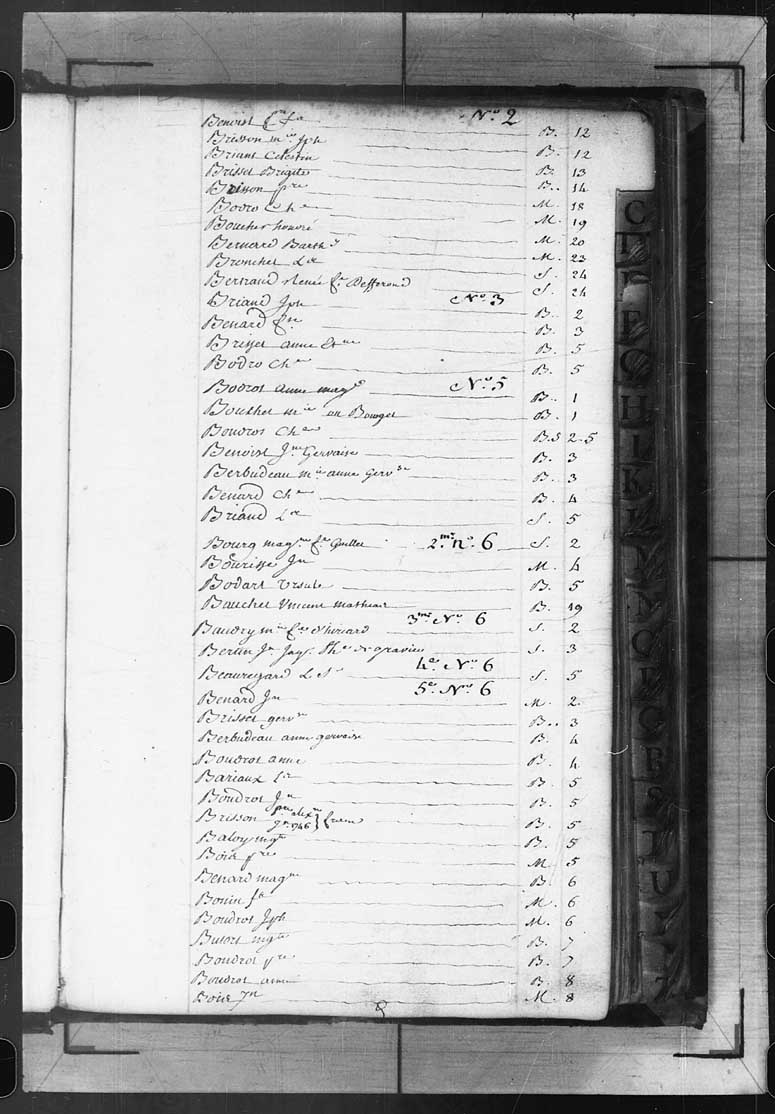 Nº 2
Benoist B. 12
Brisson mie Jph B. 12
Briant Celestin B. 13
Brisset Brigite B. 14
Brisson pre M. 18
Bodro Che M. 19
Boucher honoré M. 20
Bernard Barthy M. 23
Bronchet Lse S. 24
Bertrand Renée fe Defferond S. 24
Nº 3
Briand Jph B. 2
Benard B. 3
Brisset anne B. 5
Bodro Che B. 5
Nº 5
Bodrot anne magd B. 1
Bouchet mie ou Bouget B. 1
Boudrot Che B.S 2-5
Benoist Jne Gervaise B. 3
Berbudeau mie anne Gervse B. 3
Benard Che B. 4
Briand Lse S. 5
2me nº 6
Bourg magne fe Guillet S. 2
Bourisse Jn M. 4
Bodart Ursule B. 5
Bauchet Vincent Mathieu B. 19
3me Nº 6
Baudry mie S. 2
Bertin Jn Jaqs S. 3
4e Nº 6
Beauregard L S. 5
5e Nº 6
Benard Jn M. 2
Brisset gervse B. 3
Berbudeau anne gervaise B. 4
Boudrot anne B. 4
Bariaux B. 5
Boudrot Jn B. 5
Brisson pre alexre B. 5
9re 1746
Baloy mgte B. 5
Bois pre M. 5
Benard magne B. 6
Bonin M. 6
Boudrot Jph M. 6
Butort mgte B. 7
Boudrot pre B. 7
Boudrot anne B. 8
Bois Jn M. 8
C
H
I
K
S
T
U